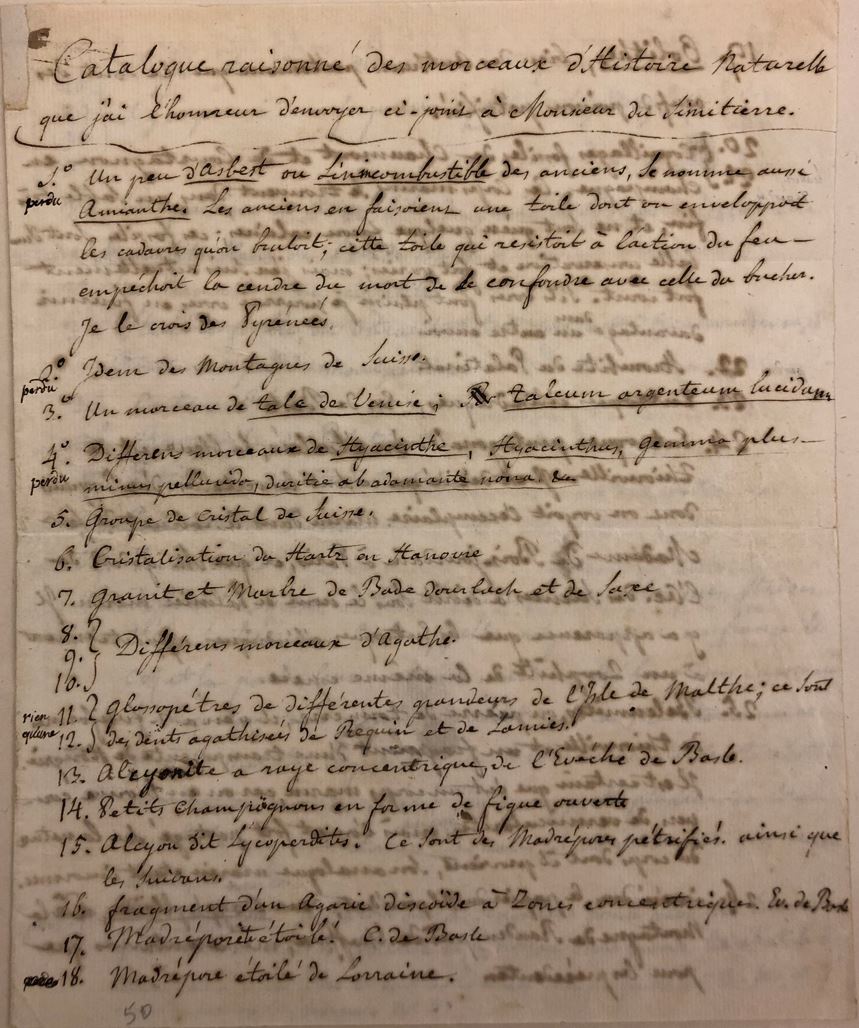 Catalogue raisonné des morceaux d'Histoire Naturelle
que j'ai l'honneur d'envoyer ci-joint à Monsieur du Simitierre.
1.° Un peu d'Asbest ou Linincombustible des anciens, se nomme aussi
perdu Amianthe. Les anciens en faisoient une toile dont on enveloppoit
les cadavres qu'on bruloit; cette toile qui resistoit à l'action du feu
empéchoit la cendre du mort de se confondre avec celle du bucher.
Je le crois des Pyrénées.
2.° Idem des Montagnes de Suisse.
perdu
3.° Un morceau de talc de Venise; talcum argenteum lucidum
4.° Différens morceaux de Hyacinthe, Hyacinthus, gemma plus-
perdu minus pellucida, duritie ab adamante nona. &c
5. Groupe de Cristal de Suisse.
6. Cristalisation du Hartz en Hanovre
7. Granit et Marbre de Bade dourlach et de Saxe
8.
9. Différens morceaux d'Agathe.
10.
rien 11. Glossopétres de différentes grandeurs de l'Isle de Malthe; ce sont
qu'une 12. des dents agathisées de Requin et de Lamies.
13. Alcyonite a raye concentrique, de l'Evéché de Basle.
14. Petits champignons en forme de figue ouverte
15. Alcyon dit Lycoperdites. Ce sont des Madrépores pétrifiés. ainsi que
les suivans.
16. fragment d'un Agaric discoïde à Zones concentriques. Ev. de Basle
17. Madréporite étoilé. C. de Basle
18. Madrépore étoilé de Lorraine.
50